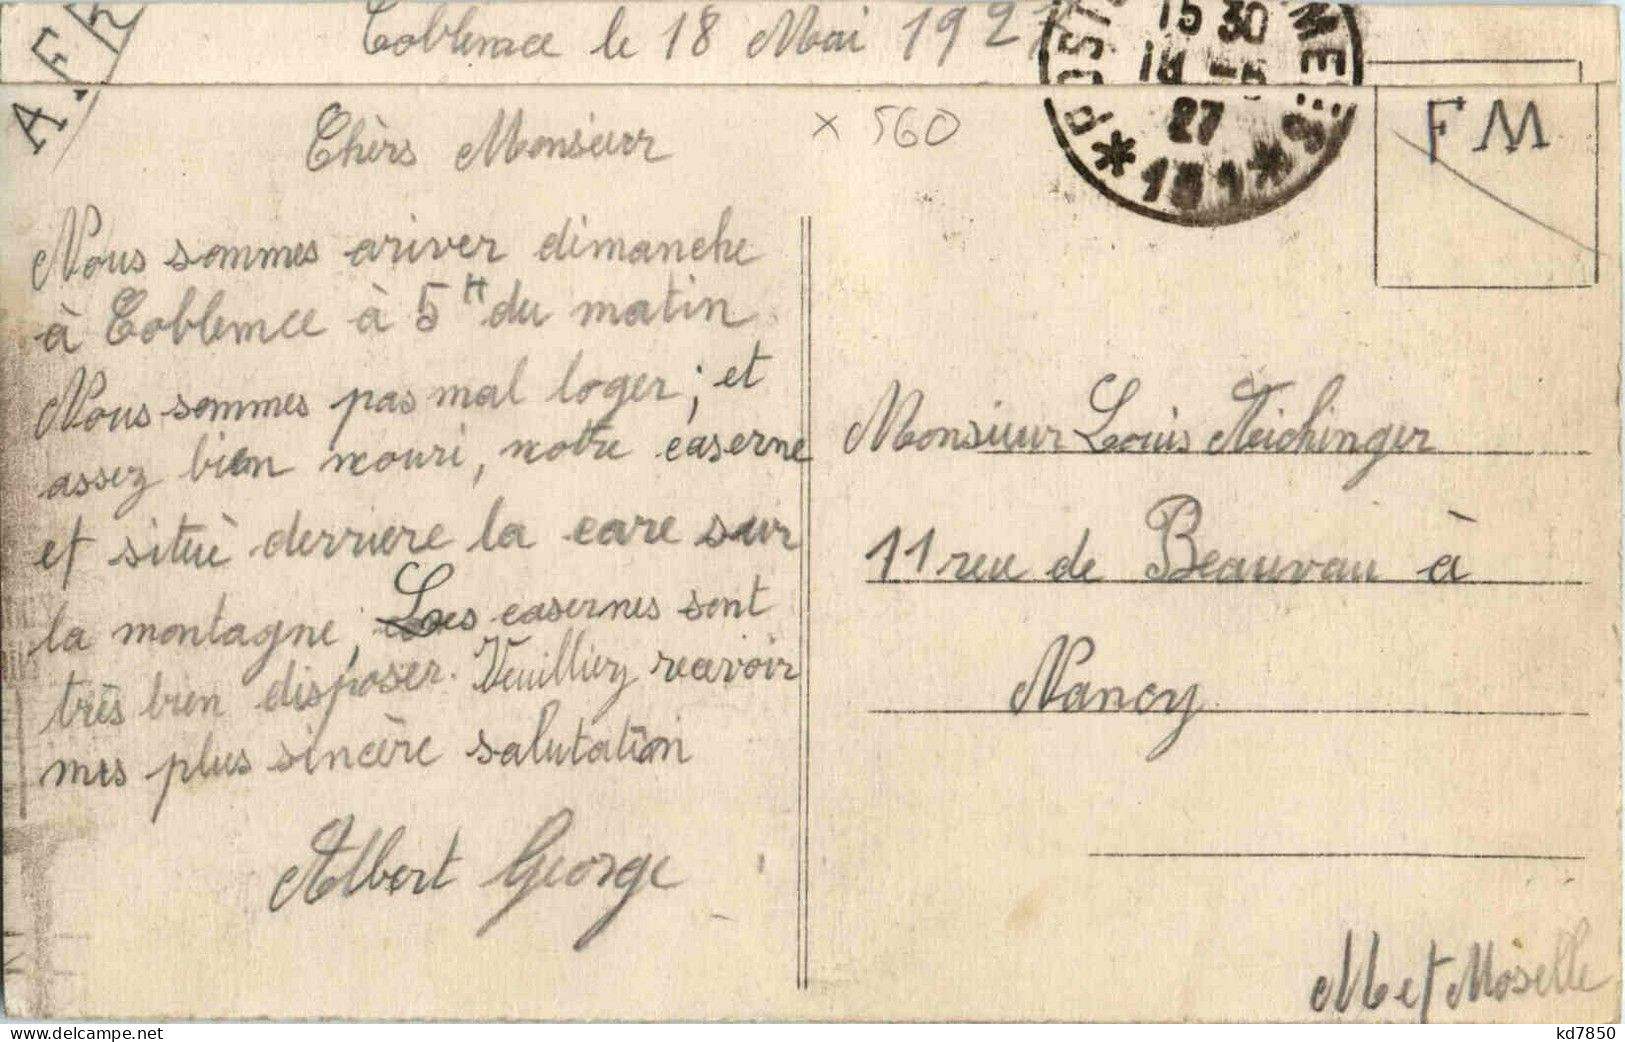 A.F.R
Coblence le 18 Mai 1927
Chèrs Monsieur
× 560
Nous sommes ariver dimanche
à Coblence à 5H du matin
Nous sommes pas mal loger; et
assez bien nouri, notre caserne
et situè derriere la care sur
la montagne, Les casernes sont
très bien disposer. Veuilliez recevoir
mes plus sincère salutation
Albert George
15 30
18 -5
27
* 181 *
FM
Monsieur Louis Aichinger
11 reu de Beauvau à
Nancy
M et Moselle
kd7850